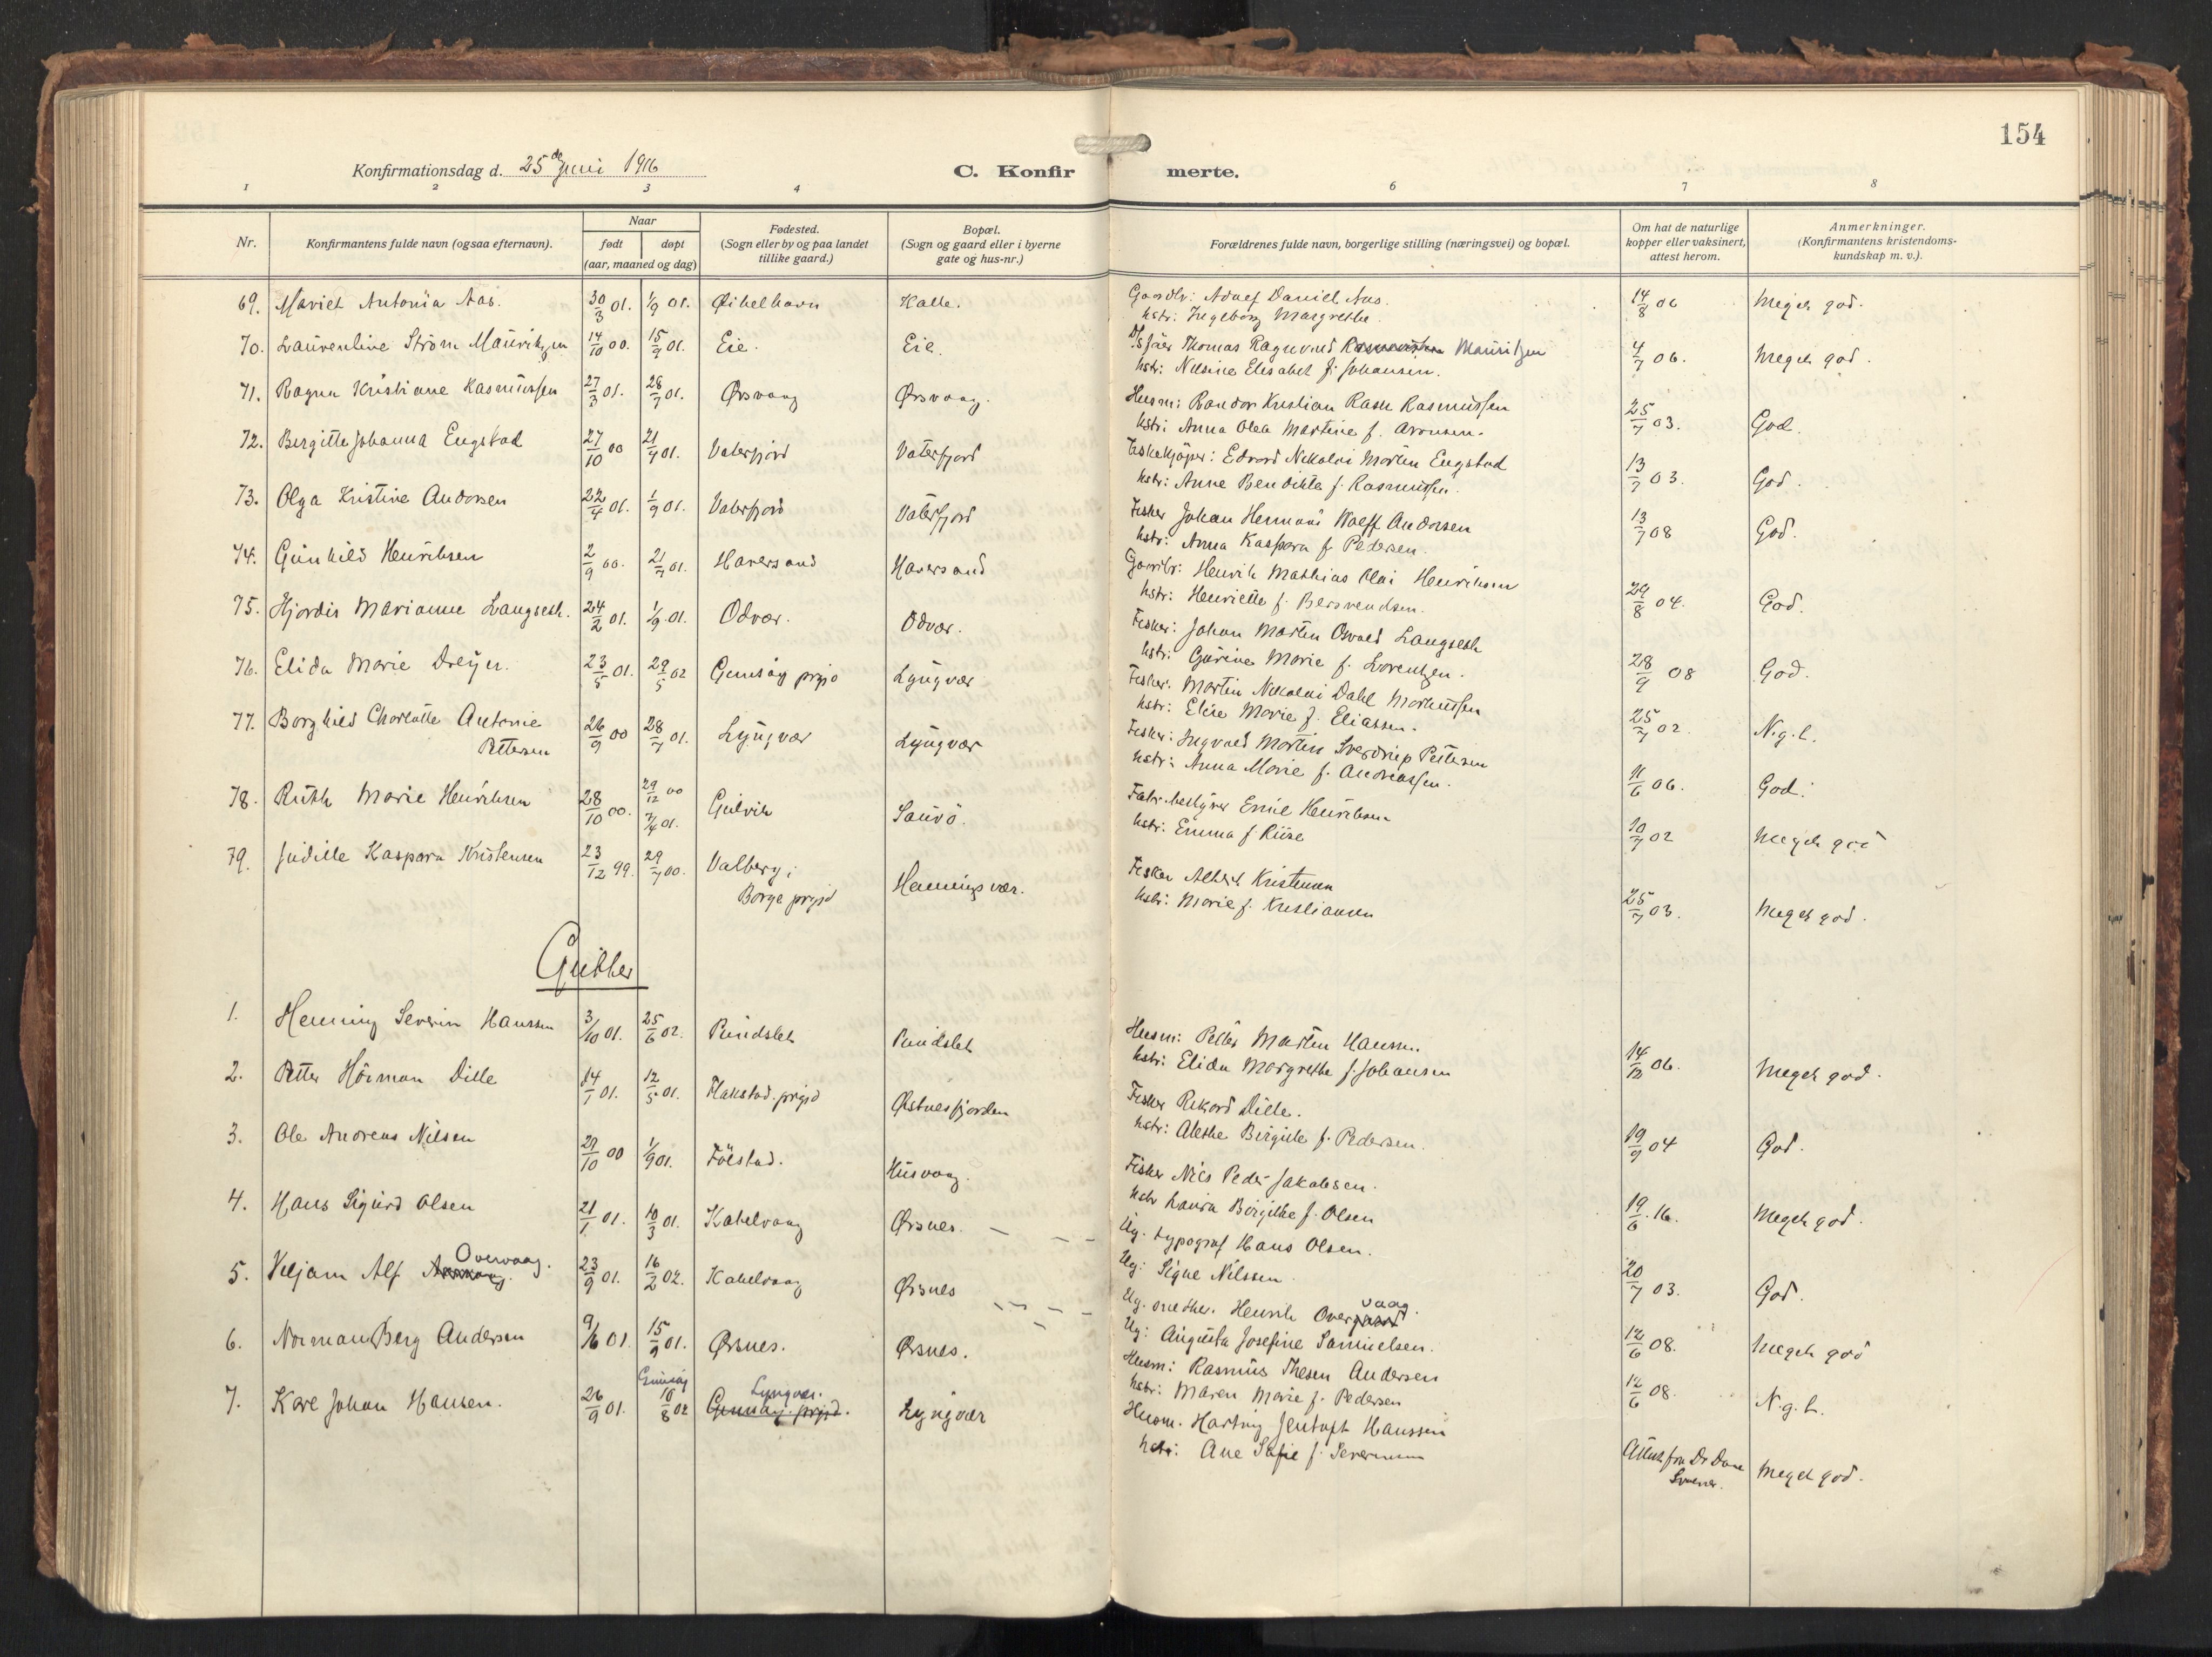 154
Konfirmationsdag d. 25de Juni 1916
C. Konfirmerte.
1 2 3 4 6 7 8
Nr.
Konfirmantens fulde navn (ogsaa efternavn).
Naar
født døpt
(aar, maaned og dag)
Fødested.
(Sogn eller by og paa landet
tillike gaard.)
Bopæl.
(Sogn og gaard eller i byerne
gate og hus-nr.)
Forældrenes fulde navn, borgerlige stilling (næringsvei) og bopæl.
Om hat de naturlige
kopper eller vaksinert,
attest herom.
Anmerkninger.
(Konfirmantens kristendoms-
kundskap m. v.).
69. Mariet Antonia Aas. 30/3 01. 1/9 01. Kalle. 14/8 06 Meget god.
Adolf Daniel Aas.
hstr: Ingeborg Margrethe.
70. Laurentine Strøm Mauritzen 14/10 00. 15/9 01. Eie. Eie. 4/7 06. Meget god.
Thomas Ragnvald Mauritzen
hstr: Nilsine Elisabet f. Johansen.
71. Ragna Kristiane Rasmussen 27/3 01. 28/7 01. Ørsvaag Ørsvaag. 25/7 03. God.
Husm: Randor Kristian Rasmussen
hstr: Anna Olea Martine f. Aronsen.
72. Bergitte Johanna Engstad 27/10 00 21/4 01. Vaterfjord Vaterfjord 13/7 03. God.
Fiskekjøper: Edvard Nikolai Mortin Engstad
hstr: Anne Bendikte f. Rasmussen.
73. Olga Kristine Andorsen 22/4 01. 1/9 01. Vaterfjord Vaterfjord 13/7 08 God.
Fisker Johan Hermans Wolff Andorsen
hstr: Anna Kaspara f. Pedersen.
74. Gunhild Henriksen 2/9 00. 21/7 01. Haversand Haversand 29/8 04. God.
Henrik Mathias Olai Henriksen
hstr: Henriette f. Bersvendsen.
75. Hjordis Marianne Langseth. 24/2 01. 1/9 01. Odvær. Odvær. 28/9 08 God.
Fisker: Johan Martin Osvald Langseth
hstr: Gurine Marie f. Lorentzen.
76. Elida Marie Dreyer. 23/5 01. 29/5 02 Gimsøy prgjd Lyngvær 25/7 02. N.g.l.
Fisker: Martin Nikolai Dahl Markussen
hstr: Elise Marie f. Eliassen.
77. Borghild Charlotte Antonie
Pettersen 26/9 00 28/7 01. Lyngvær Lyngvær 11/6 06. God.
Fisker: Ingvald Martin Sverdrup Pettersen
hstr: Anna Marie f. Andreassen.
78. Ruth Marie Henriksen 28/10 00. 29/12 00 7/4 01. Gulvik Sauø. 10/7 02 Meget god
Fabr.bestyrer Emil Henriksen
hstr: Emma f. Riise
79. Juditte Kaspara Kristensen 23/12 99. 29/7 00. Valberg i
Borge prgjd Henningsvær. 25/7 03. Meget god.
Fisker Albert Kristensen
hstr: Marie f. Kristiansen
Gutter
1. Henning Severin Hanssen 3/10 01. 25/6 02. Pundslet Pundslet 14/12 06. Meget god.
Husm: Peder Martin Hanssen.
hstr: Elida Margrethe f. Johansen
2. Petter Hörman Dille 14/1 01. 12/5 01. Flakstad. prgjd Østnesfjorden 19/9 04 God.
Fisker Rikard Dille.
hstr: Alethe Birgitte f. Pedersen.
3. Ole Andreas Nilsen 29/10 00 1/9 01. Følstad. Husvaag. 19/6. 16. Meget god.
Fisker Nils Peder Jakobsen.
hstr Laura Birgitte f. Olsen
4. Hans Sigurd Olsen 21/1 01. 10/3 01. Kabelvaag Ørsnes. 20/7 03. God.
Ug. typograf Hans Olsen.
Ug: Signe Nilssen.
5. Viljam Alf Overvaag. 23/9 01. 16/2 02. Kabelvaag Ørsnes 12/6 08. Meget god
Ug. snedker. Henrik Overvaag.
Ug: Augusta Josefine Samuelsen.
6. Norman Berg Andersen 9/6 01. 15/9 01. Ørsnes. Ørsnes. 12/6 08. N.g.l.
Husm: Rasmus Thesen Andersen
hstr: Maren Marie f. Pedersen
7. Kare Johan Hansen. 26/9 01. Gimsøy 10/8 02 Lyngvær. Gimsøy. prgjd. Lyngvær Attest fra Dr Dane
Meget god.
Husm. Hartvig Jentoft Hanssen
hstr: Ane Sofie f. Severinsen